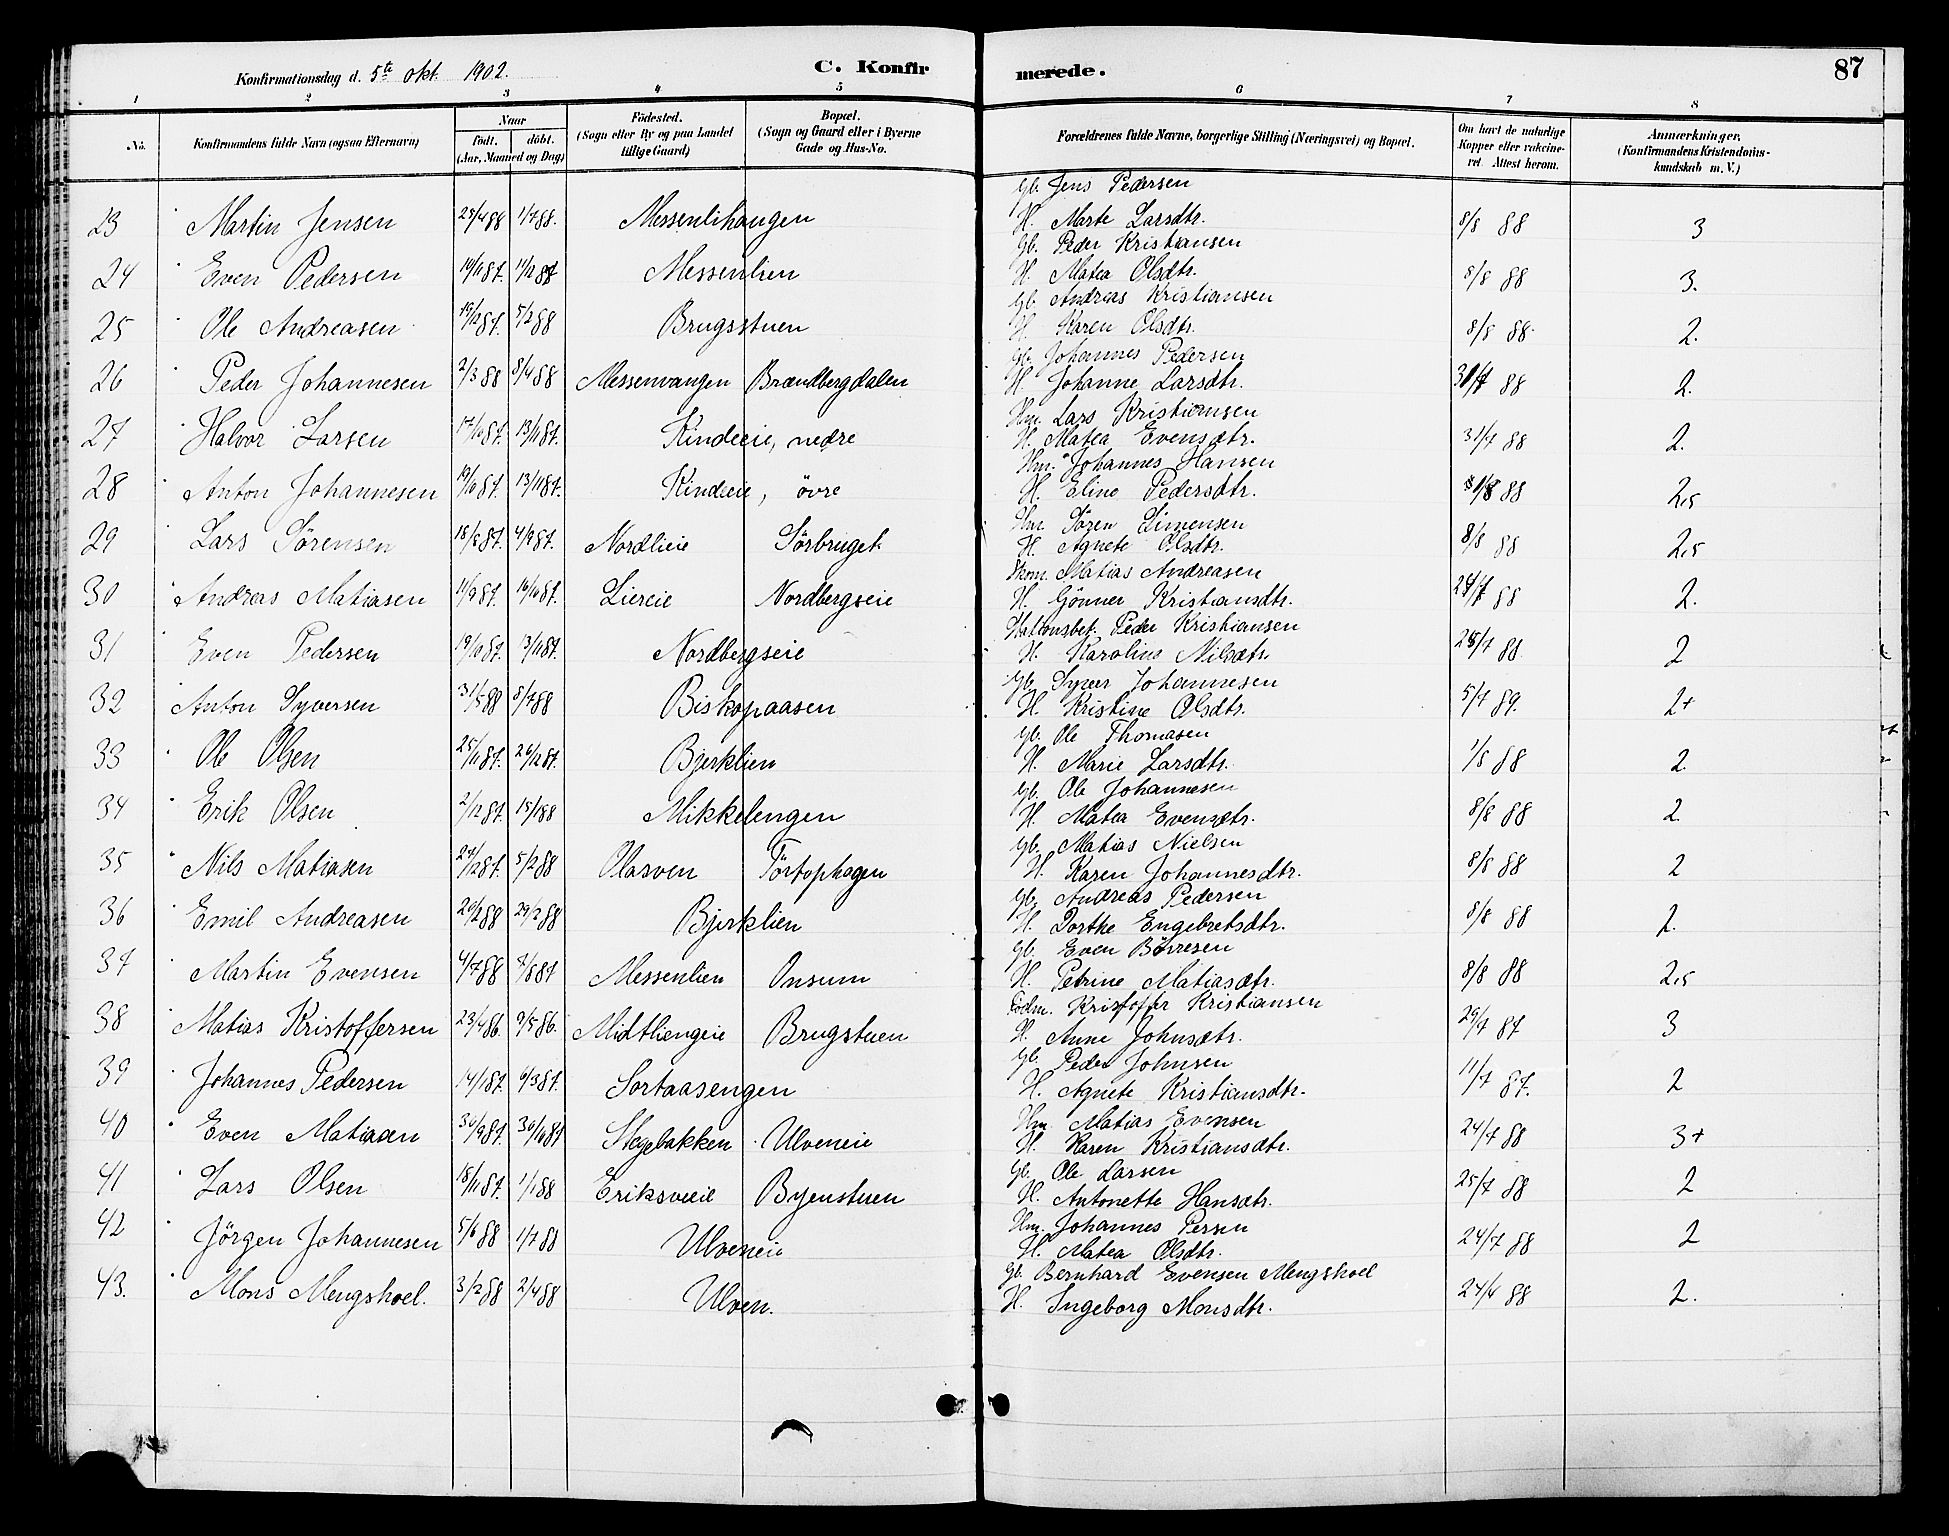 Konfirmationsdag d. 5te Okt. 1902. C. Konfirmerede. 87
1 2 3 4 5 6 7 8
No. Konfirmandens fulde Navn (ogsaa Efternavn) Naar födt. döbt. (Aar, Maaned og Dag) Födested. (Sogn eller By og paa Landet tillige Gaard) Bopæl. (Sogn og Gaard eller i Byerne Gade og Hus-No. Forældrenes fulde Navne, borgerlige Stilling (Næringsvei) og Bopæl. Om havt de naturlige Kopper eller vakcineret. Attest herom. Anmærkninger. (Konfirmandens Kristendomskundskab m. V.)
Gb. Jens Pedersen
23 Martin Jensen 25/4 88 1/7 88. Messenlihaugen H. Marte Larsdtr. 8/8 88 3
Gb. Peder Kristiansen
24 Even Pedersen 14/11 87. 11/12 87 Messenlien H. Matea Olsdtr. 8/8 88 3.
Gb. Andreas Kristiansen
25 Ole Andreasen 19/12 87. 5/2 88 Brugsstuen H. Karen Olsdtr. 8/8 88. 2.
Gb. Johannes Pedersen
26 Peder Johannesen 2/3 88 8/4 88 Messenvangen Brændbergdalen H. Johanne Larsdtr. 31/7 88 2.
Hm. Lars Kristiansen
27 Halvor Larsen 17/10 87. 13/11 87. Kindeeie, nedre H. Matea Evensdtr. 31/7 88 2.
Hm. Johannes Hansen
28 Anton Johannesen 19/10 87. 13/11 87. Kindeeie, övre H. Eline Pedersdtr. 88 2,5
Hm. Sören Simensen
29 Lars Sörensen 18/8 87. 4/9 87. Nordlieie Sörbruget H. Agnete Olsdtr. 8/8 88 2,5
Skom. Matias Andreasen
30 Andreas Matiasen 11/9 87. 16/10 87. Liereie Nordbergseie H. Gönner Kristiansdtr. 24/7 88 2.
Stationsbet. Peder Kristiansen
31 Even Pedersen 19/10 87. 13/11 87. Nordbergseie H. Karoline Nilsdtr. 25/7 88 2
Gb. Syver Johannesen
32 Anton Syversen 31/5 88 8/7 88 Biskopaasen H. Kristine Olsdtr. 5/7 89. 2+
Gb. Ole Thomasen
33 Ole Olsen 25/11 87. 26/12 87. Bjerklien H. Marie Larsdtr. 1/8 88 2.
Gb. Ole Johannesen
34 Erik Olsen 2/12 87. 15/1 88 Mikkelengen H. Matea Evensdtr. 8/8 88 2.
Gb. Matias Nielsen
35 Nils Matiasen 24/12 87. 5/2 88 Olasven Törtophagen H. Karen Johannesdtr. 8/8 88 2
Gb. Andreas Pedersen
36 Emil Andreasen 20/2 88 29/2 88 Bjerklien H. Dorthe Engebretsdtr. 8/8 88 2.
Gb. Even Börresen
37 Martin Evensen 4/7 88 87 Messenlien Onsum H. Petrine Matiasdtr. 8/8 88 2,5
Fodm. Kristoffer Kristiansen
38 Matias Kristoffersen 23/4 86. 9/5 86. Midtliengeie Brugstuen H. Anne Johnsdtr. 29/7 87 3
Gb. Peder Johnsen
39 Johannes Pedersen 14/1 87. 6/3 87. Sortaasengen H. Agnete Kristiansdtr. 11/7 87. 2
Hm. Matias Evensen
40 Even Matiasen 30/9 87. 30/10 87 Stegebakken Ulveneie H. Karen Kristiansdtr. 24/7 88 3+
Gb. Ole Larsen
41 Lars Olsen 18/11 87. 1/1 88 Eriksveeie Byenstuen H. Antonette Hansdtr. 25/7 88 2
Hm. Johannes Persen
42 Jörgen Johannesen 5/6 88 1/7 88 Ulveneie H. Matea Olsdtr. 24/7 88 2
Gb. Bernhard Evensen Mengshoel
43. Mons Mengshoel. 3/2 88 2/4 88 Ulven. H. Ingeborg Monsdtr. 24/6 88 2.